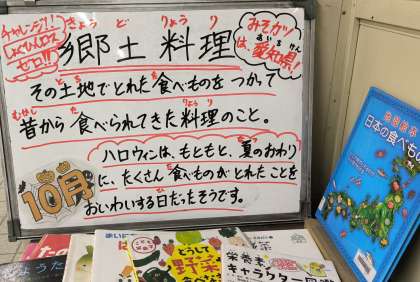 チャレンジ!!
しょくひんロス
ゼロ!!
きょうどりょうり
郷土料理
みそカツ
は、愛知県!
あいちけん
その土地でとれた食べものをつかって
むかし
昔から食べられてきた料理のこと。
りょうり
ハロウィンは、もともと、夏のおわり
に、たくさん食べものがとれたことを
おいわいする日だったそうです。
10月
日本の食べもの
どうして
野菜
栄養素
キャラクター図鑑